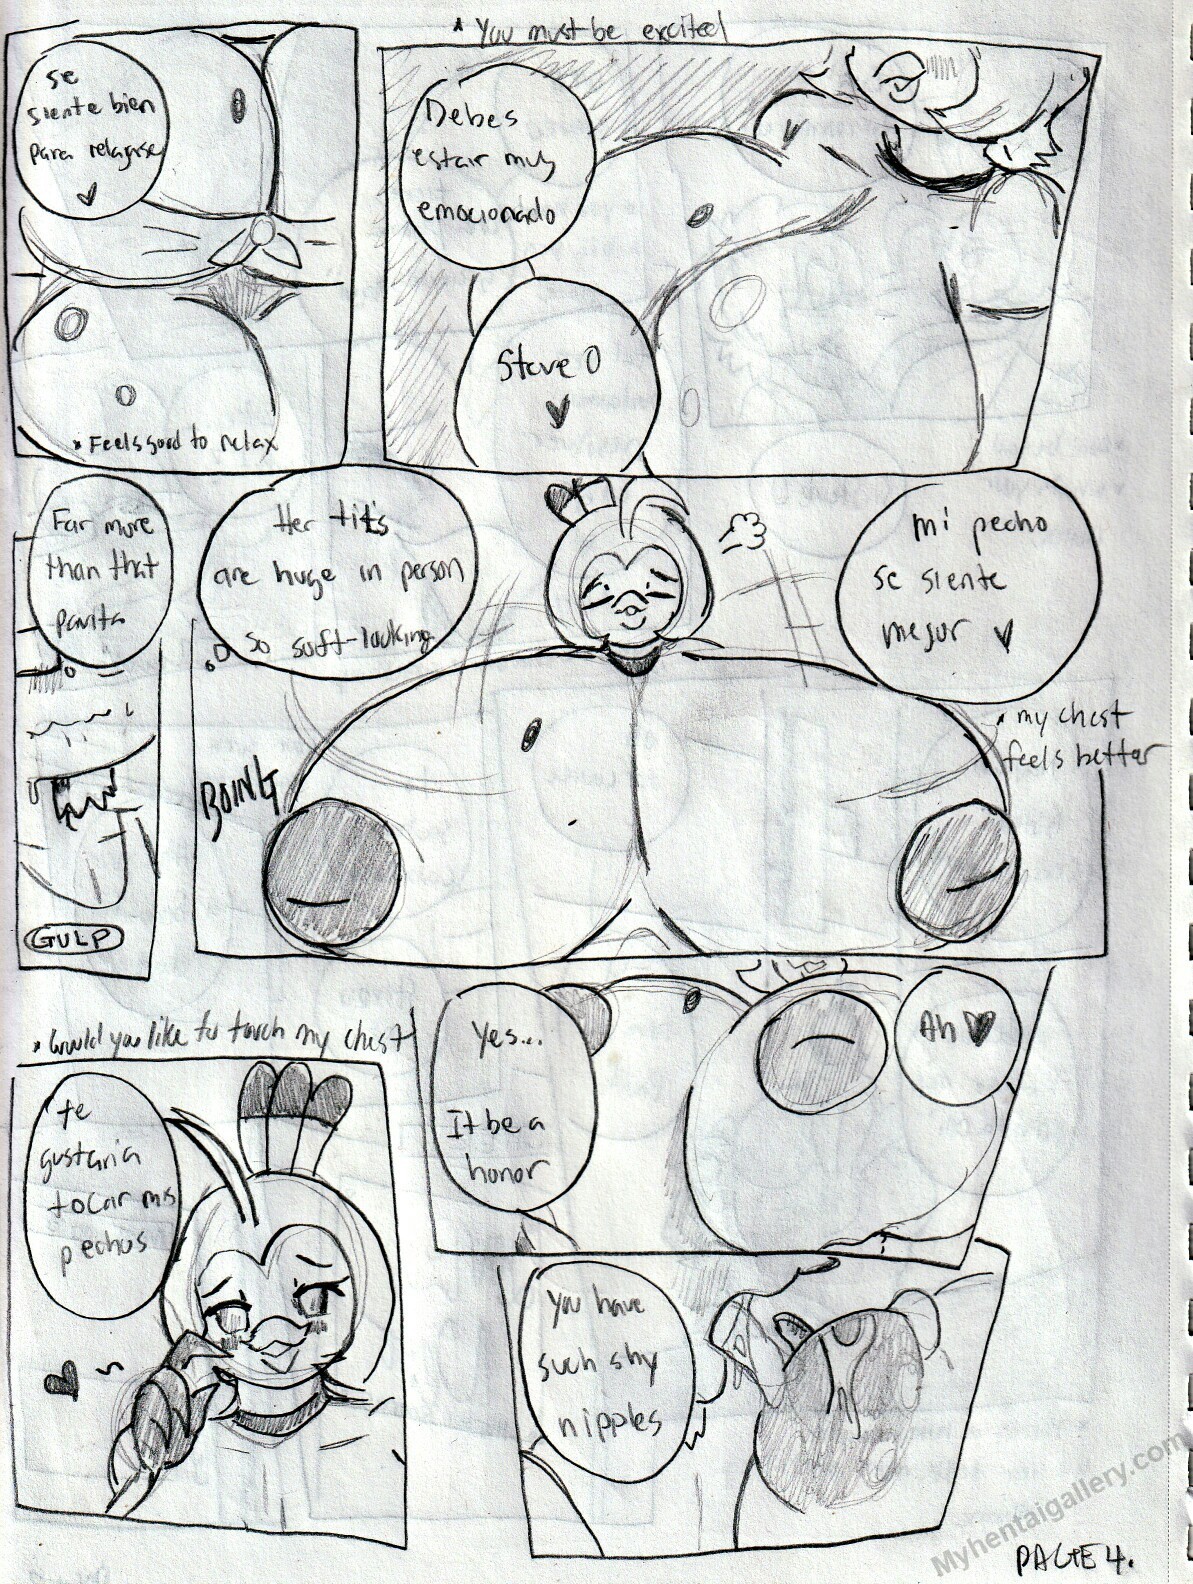 * You must be excited
se
siente bien
para relajarse
* Feels good to relax
Debes
estair muy
emocionado
Steve O
Far more
than that
Her tits
are huge in person
so soft-looking
mi pecho
se siente
mejor
* my chest
feels better
BOING
GULP
* Would you like to touch my chest
te
gustaria
tocar mis
pechos
Yes...
It be a
honor
Ah
You have
such shy
nipples
Myhentaigallery.com
PAGE 4.